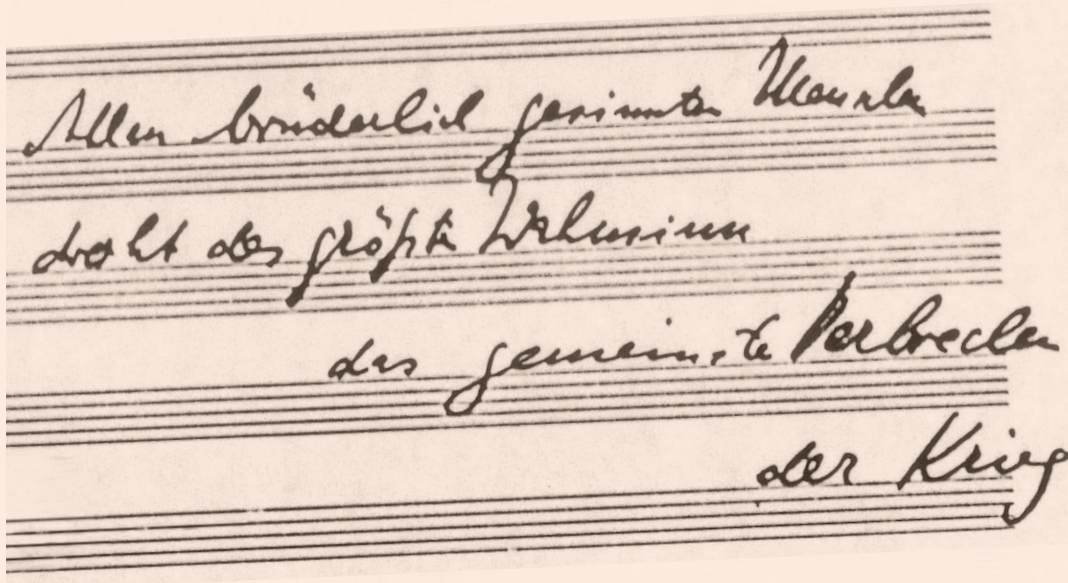 Allen brüderlich gesinnten Menschen
droht der größte Wahnsinn
das gemeinste Verbrechen
der Krieg